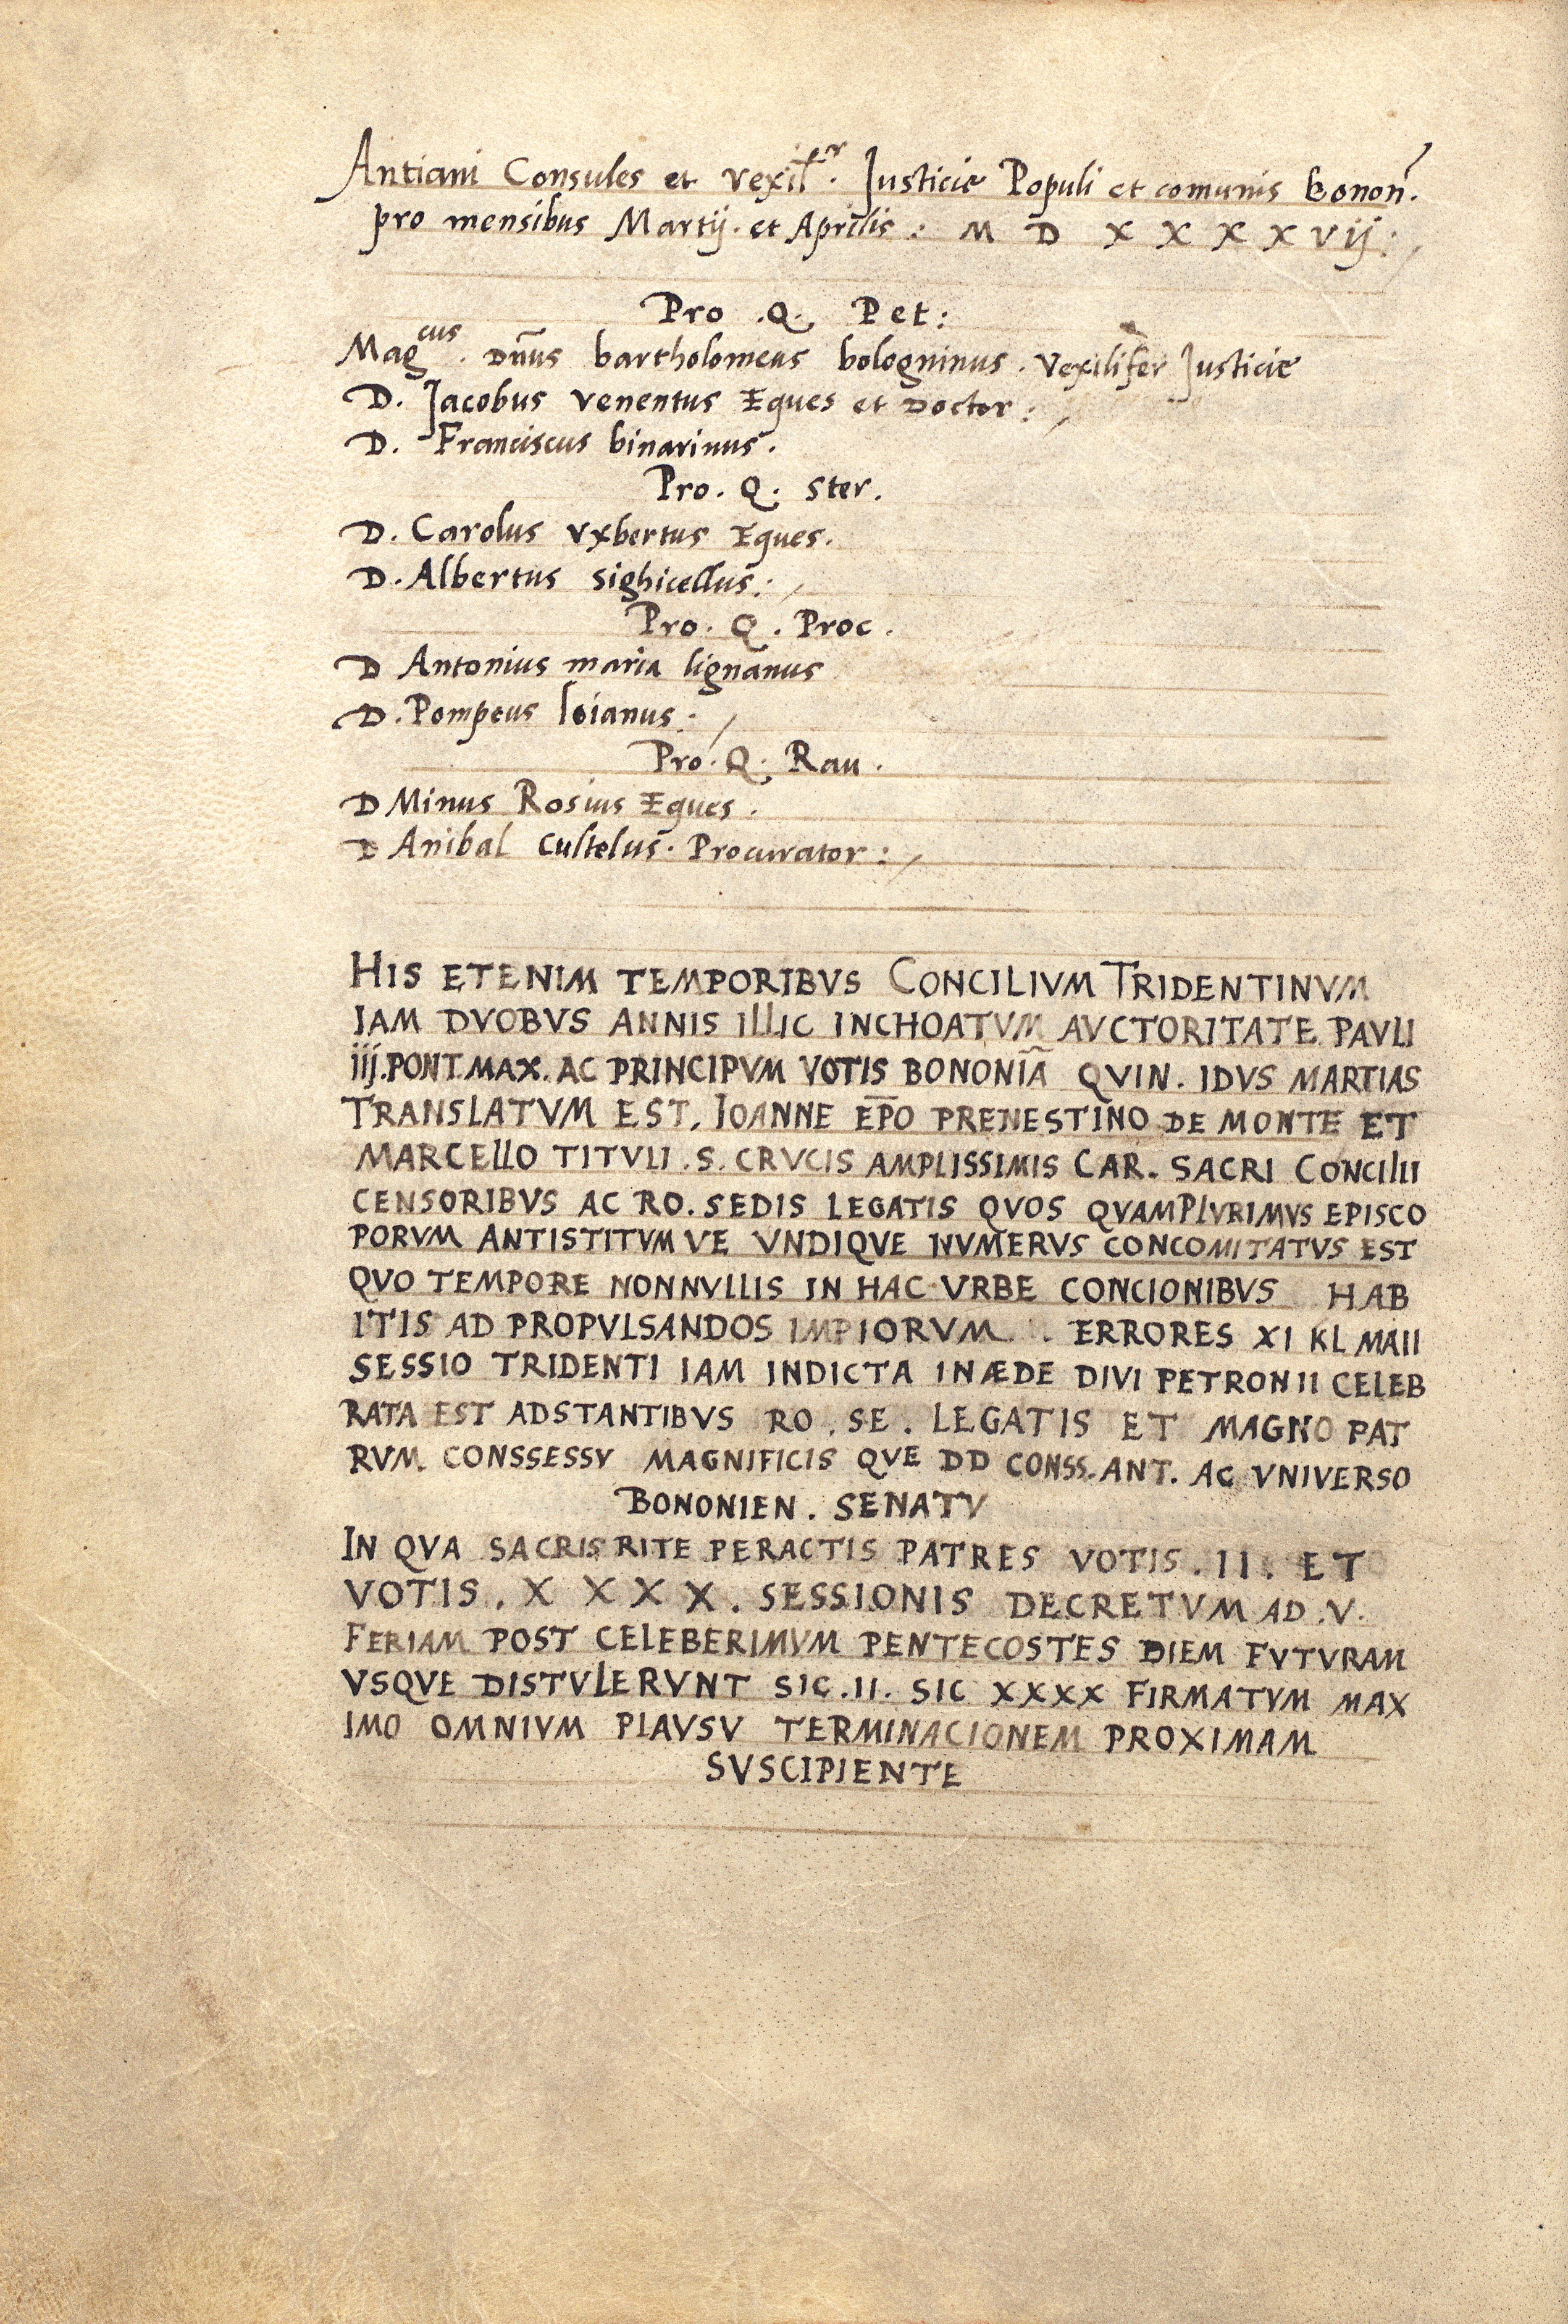 Antiani Consules et vexil^fr. Justicie Populi et comunis bonon̄.
pro mensibus Martij. et Aprilis : M D X X X X vij :
Pro .Q. Pet:
Mag^cus. Dn̄us bartholomeus bologninus . Vexilifer Justicie
D. Jacobus venentus Eques et Doctor :
D. Franciscus binarinus.
Pro. Q. Ster.
D. Carolus vxbertus Eques.
D. Albertus sighicellus:
Pro. Q. Proc.
D Antonius maria lignanus
D. Pompeus loianus :
Pro. Q. Rau.
D Minus Rosius Eques .
D Anibal Custelus. Procurator :
HIS ETENIM TEMPORIBVS CONCILIVM TRIDENTINVM
IAM DVOBVS ANNIS ILLIC INCHOATVM AVCTORITATE PAVLI
iij. PONT. MAX. AC PRINCIPVM VOTIS BONONIĀ QVIN. IDVS MARTIAS
TRANSLATVM EST, IOANNE EP̄O PRENESTINO DE MONTE ET
MARCELLO TITVLI .S. CRVCIS AMPLISSIMIS CAR. SACRI CONCILII
CENSORIBVS AC RO. SEDIS LEGATIS QVOS QVAMPLVRIMVS EPISCO
PORVM ANTISTITVM VE VNDIQVE NVMERVS CONCOMITATVS EST
QVO TEMPORE NONNVLLIS IN HAC VRBE CONCIONIBVS HAB
ITIS AD PROPVLSANDOS IMPIORVM . ERRORES XI KL MAII
SESSIO TRIDENTI IAM INDICTA IN ÆDE DIVI PETRONII CELEB
RATA EST ADSTANTIBVS RO. SE. LEGATIS ET MAGNO PAT
RVM CONSSESSV MAGNIFICIS QVE DD CONSS. ANT. AC VNIVERSO
BONONIEN. SENATV
IN QVA SACRIS RITE PERACTIS PATRES VOTIS . II . ET
VOTIS . X X X X . SESSIONIS DECRETVM AD .V.
FERIAM POST CELEBERIMVM PENTECOSTES DIEM FVTVRAM
VSQVE DISTVLERVNT SIC .II. SIC XXXX FIRMATVM MAX
IMO OMNIVM PLAVSV TERMINACIONEM PROXIMAM
SVSCIPIENTE